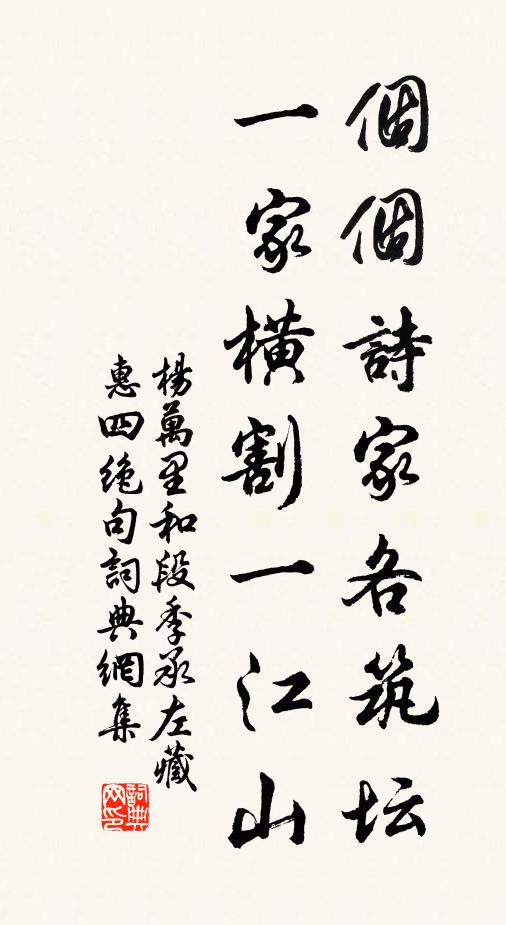 個個詩家各筑坛
一家横割一江山
楊萬里和段季承左藏
惠四绝句詞典網集
詞典
网印